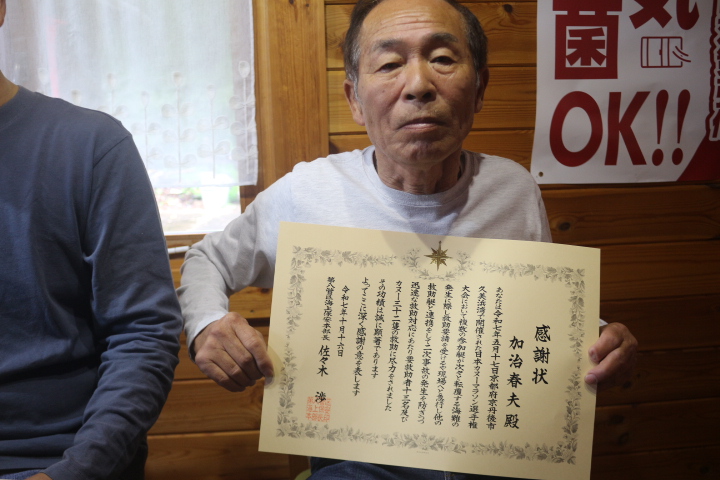 感謝状
加治春夫 殿
あなたは令和七年五月十七日京都府京丹後市
久美浜湾で開催された日本カヌーマラソン選手権
大会において複数の参加艇が次々と転覆する海難の
発生に際し救助要請を受けるや現場へと急行し他の
救助艇と連携をして二次事故の発生を防ぎつつ
迅速な救助対応にあたり要救助者十三名及び
カヌー三十二艇の救助に尽力をされました
その功績は誠に顕著であります
よってここに深く感謝の意を表します
令和七年十月十六日
第八管区海上保安本部長 佐々木 渉
菌
気
OK!!